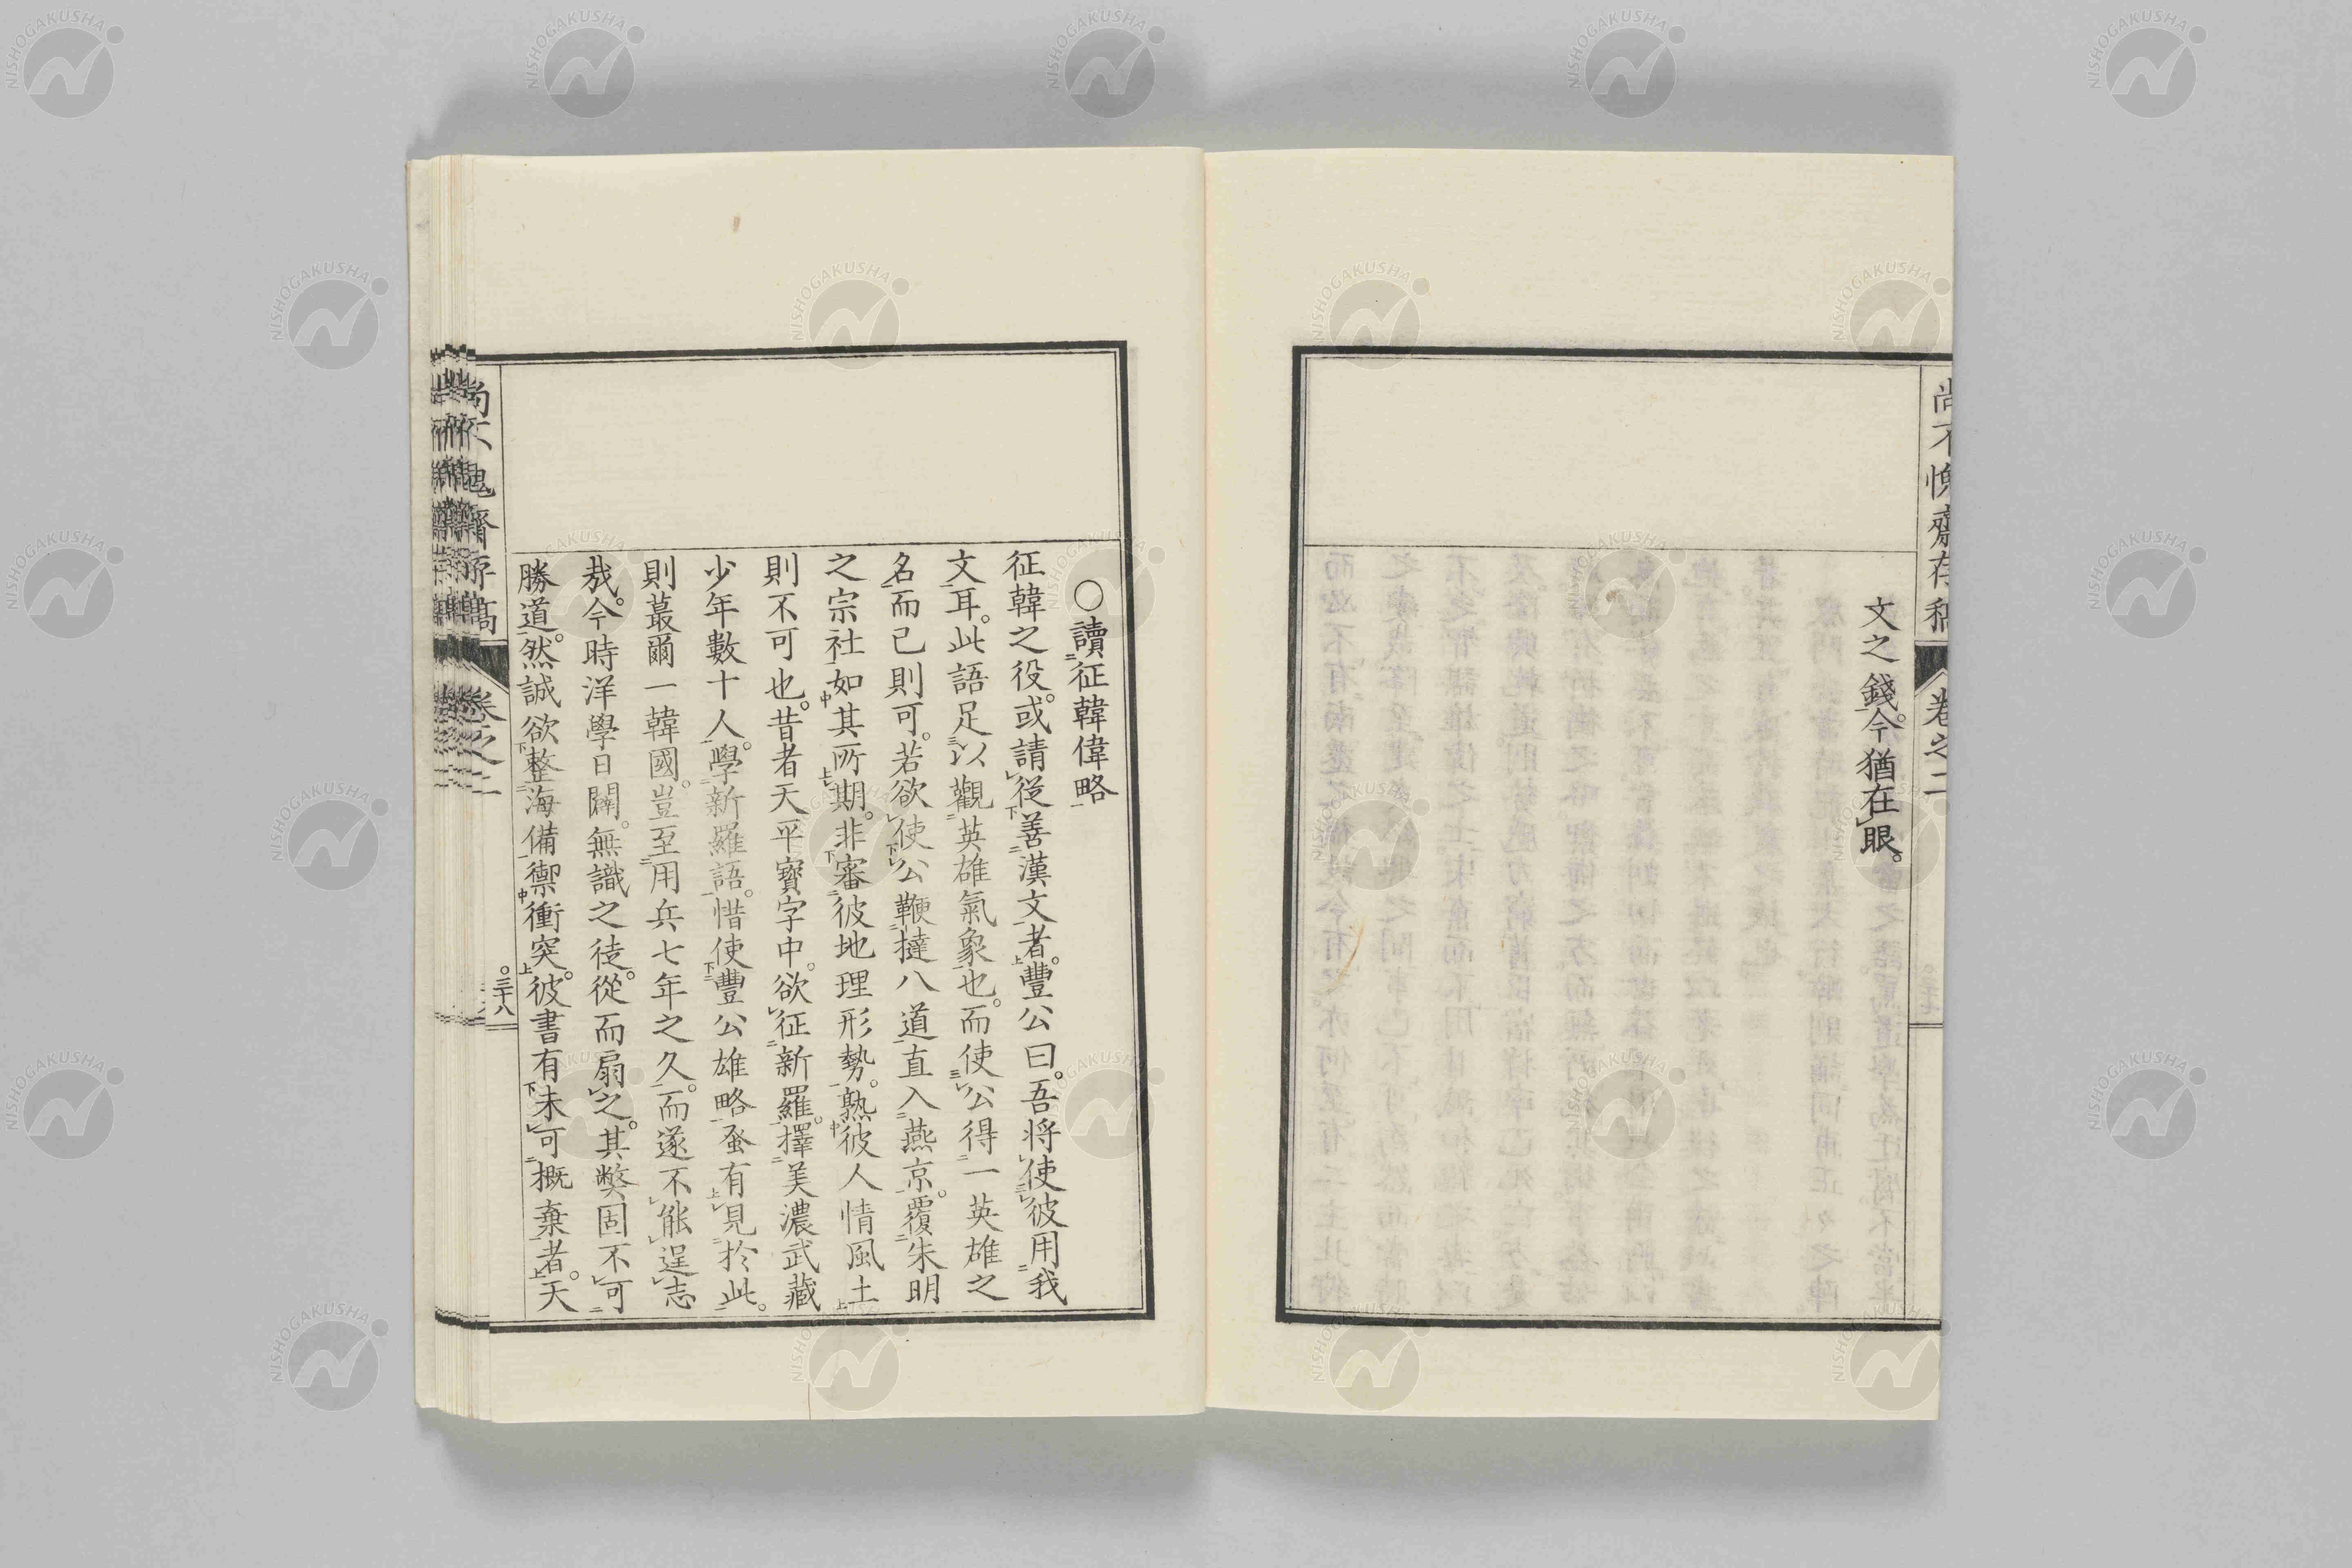 尚不愧齋存稿 卷之二
文之錢。今猶在眼。
○讀征韓偉略
征韓之役。或請從善漢文者。豐公曰。吾將使彼用我
文耳。此語足以觀英雄氣象也。而使公得一英雄之
名而已則可。若欲使公鞭撻八道直入燕京。覆朱明
之宗社如其所期。非審彼地理形勢。熟彼人情風土
則不可也。昔者天平寶字中。欲征新羅。擇美濃武藏
少年數十人。學新羅語。惜使豐公雄略蚤有見於此。
則蕞爾一韓國。豈至用兵七年之久。而遂不能逞志
哉。今時洋學日闢。無識之徒。從而扇之。其弊固不可
勝道。然誠欲整海備禦衝突。彼書有未可概棄者。天
卷之二
三十八
NISHOGAKUSHA